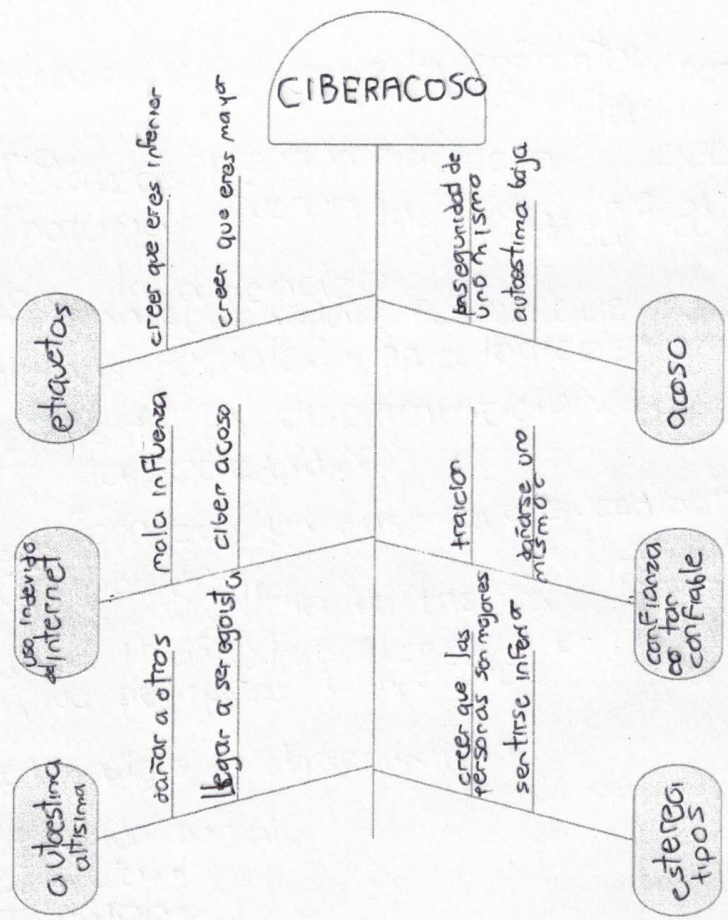 CIBERACOSO
etiquetas
creer que eres inferior
creer que eres mayor
uso indevido
del internet
mala influenza
ciber acoso
autoestima
altisima
dañar a otros
llegar a ser egoista
acoso
insegunidad de
uno mismo
autoestima baja
confianza
no tan
confiable
traicion
dañarse uno
mismo
estereoi
tipos
creer que las
personas son mejores
sentirse inferior